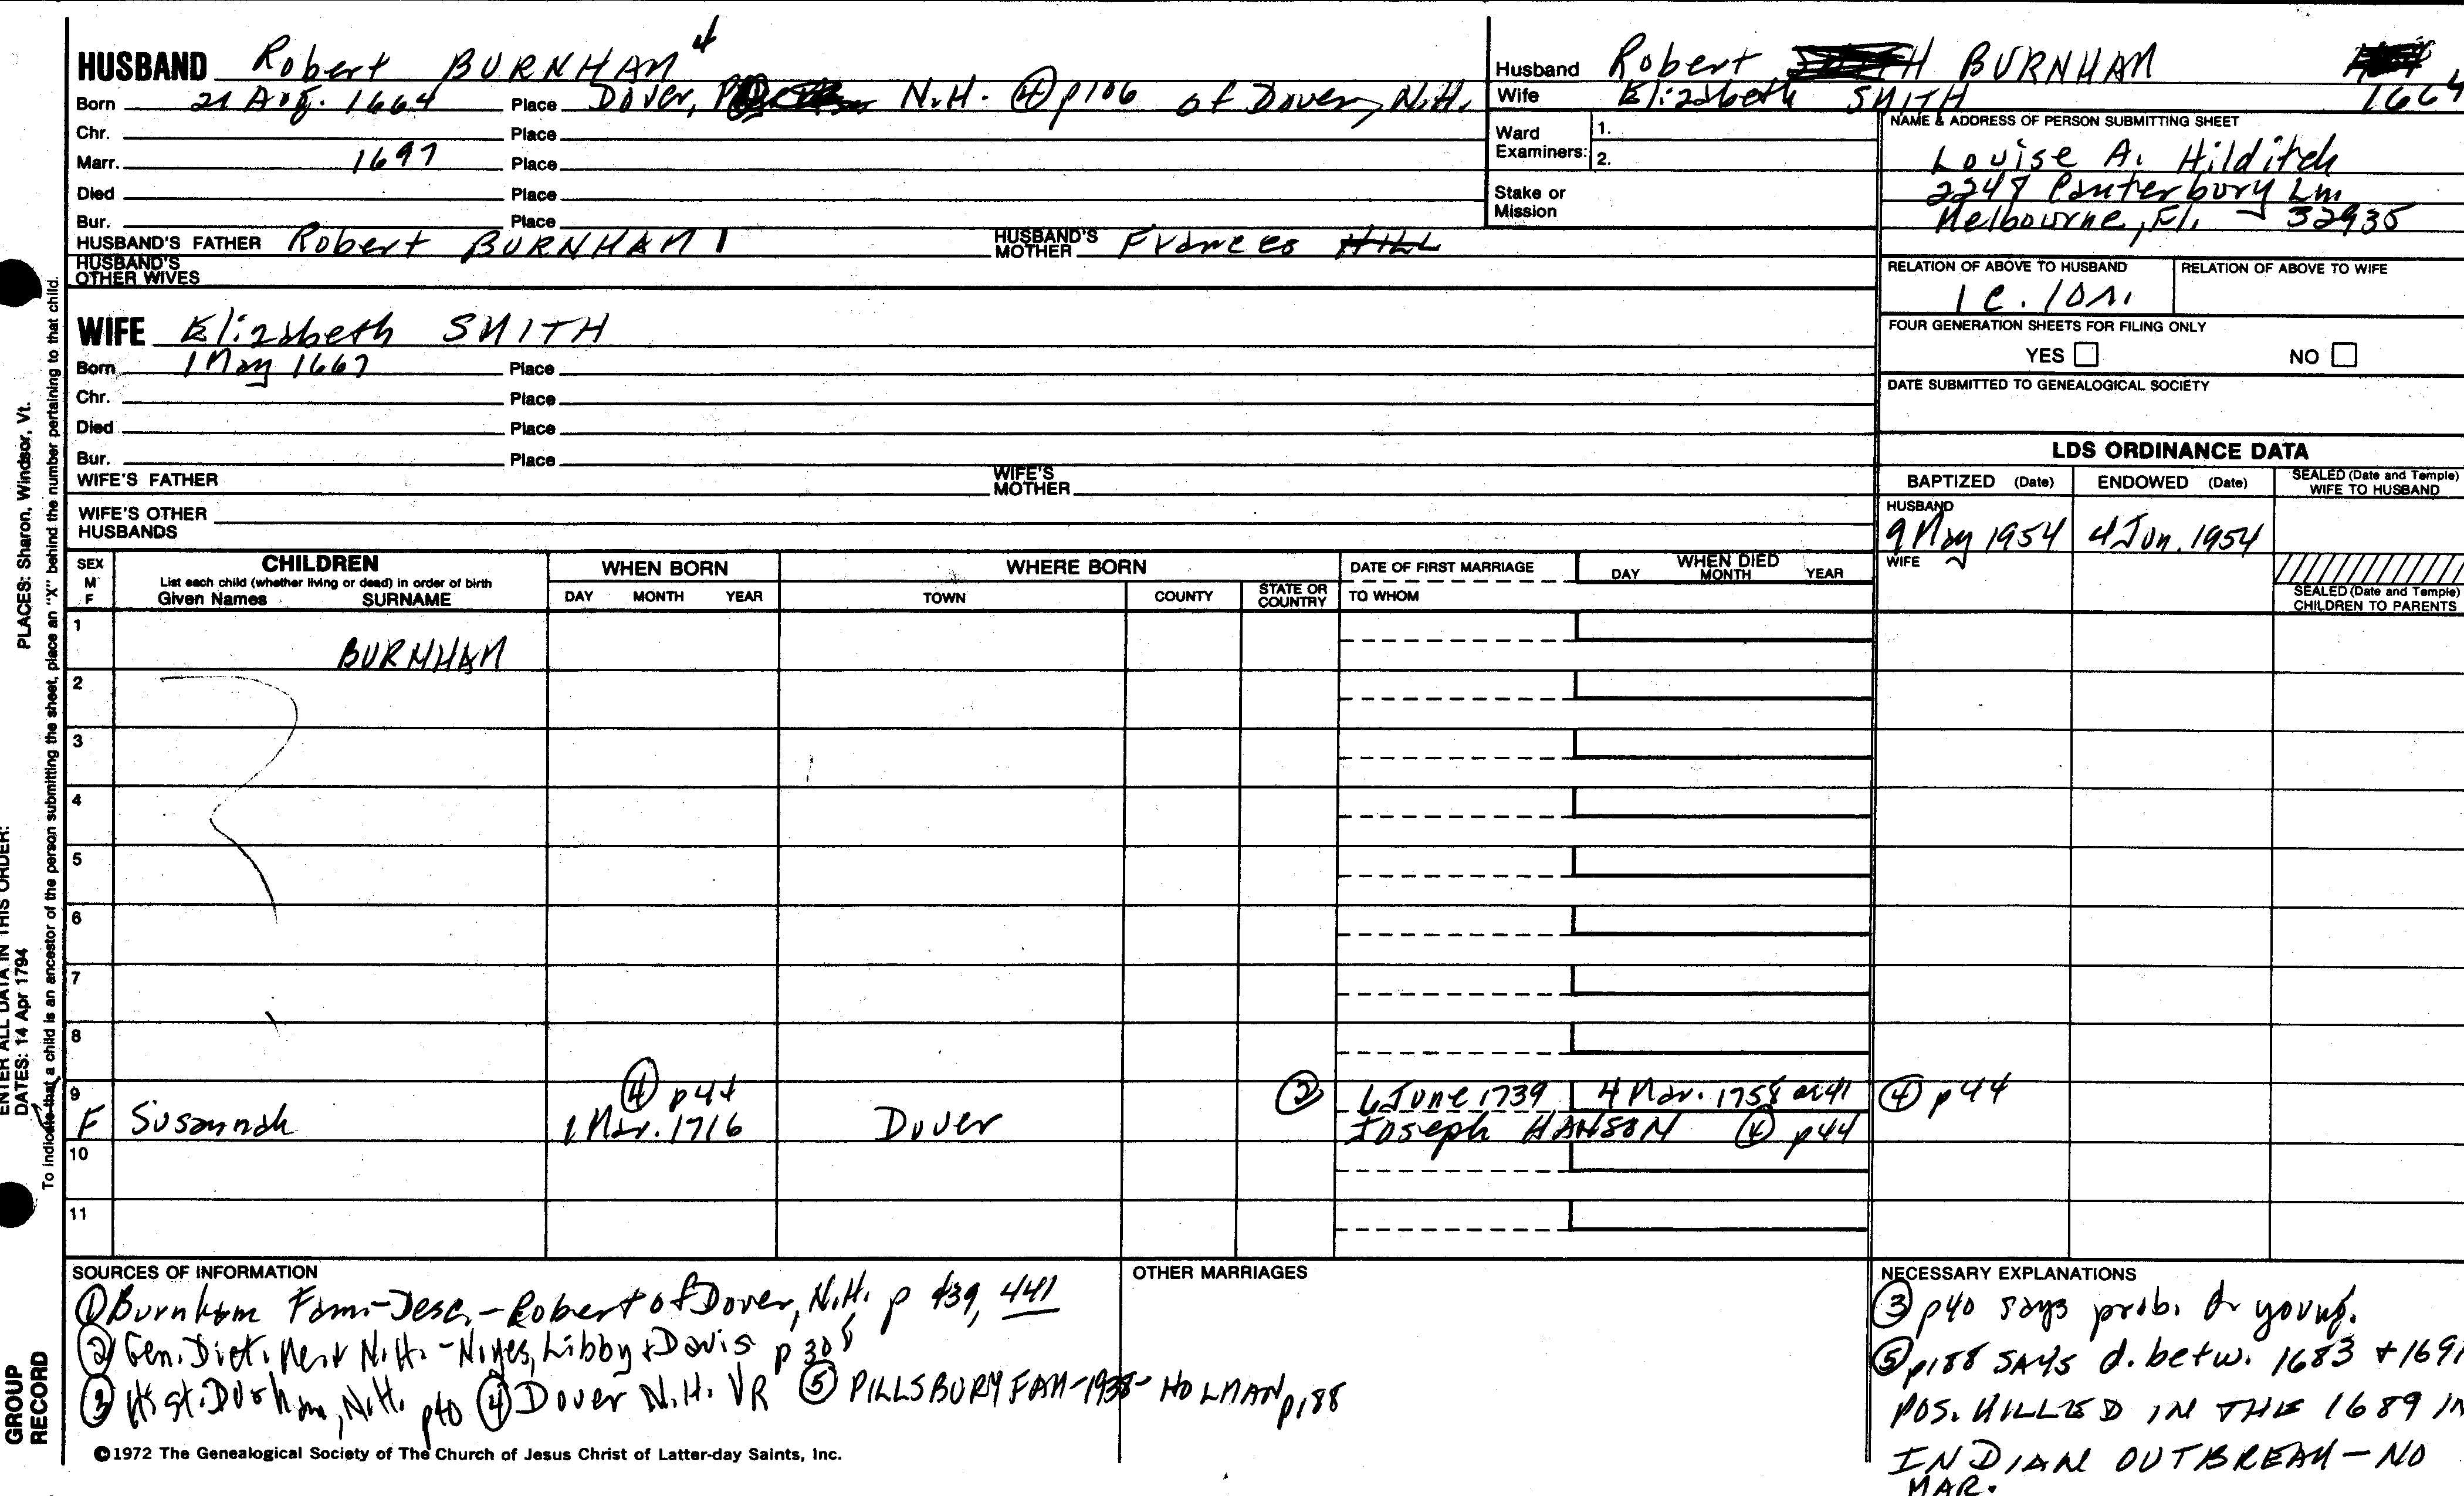 HUSBAND Robert BURNHAM 4
Born 21 Aug. 1664 Place Dover, N.H. ④ p106 of Dover, N.H.
Chr. Place
Marr. 1697 Place
Died Place
Bur. Place
HUSBAND'S FATHER Robert BURNHAM 1 HUSBAND'S MOTHER Frances HILL
HUSBAND'S OTHER WIVES
WIFE Elizabeth SMITH
Born 1 May 1667 Place
Chr. Place
Died Place
Bur. Place
WIFE'S FATHER WIFE'S MOTHER
WIFE'S OTHER HUSBANDS
Husband Robert BURNHAM
Wife Elizabeth SMITH 1664
Ward Examiners: 1.
2.
Stake or Mission
NAME & ADDRESS OF PERSON SUBMITTING SHEET
Louise A. Hilditch
Canterbury Ln.
Melbourne, Fl. 32935
RELATION OF ABOVE TO HUSBAND RELATION OF ABOVE TO WIFE
1c. 10r.
FOUR GENERATION SHEETS FOR FILING ONLY
YES NO
DATE SUBMITTED TO GENEALOGICAL SOCIETY
LDS ORDINANCE DATA
BAPTIZED (Date) ENDOWED (Date) SEALED (Date and Temple) WIFE TO HUSBAND
HUSBAND
9 May 1954 4 Jun. 1954
WIFE
SEALED (Date and Temple) CHILDREN TO PARENTS
SEX M F CHILDREN WHEN BORN WHERE BORN DATE OF FIRST MARRIAGE WHEN DIED
List each child (whether living or dead) in order of birth DAY MONTH YEAR
Given Names SURNAME DAY MONTH YEAR TOWN COUNTY STATE OR COUNTRY TO WHOM
1
BURNHAM
2
3
4
5
6
7
8
9 ④ p44 ② 6 June 1739 4 Mar. 1758 ae 41 ④ p44
F Susannah 1 Mar. 1716 Dover Joseph HANSON ④ p44
10
11
SOURCES OF INFORMATION
① Burnham Fam-Desc.-Robert of Dover, N.H. p 439, 441
② Gen. Dict. Me & N.H. - Noyes, Libby & Davis p 308
③ Hist. Durham, N.H. p40 ④ Dover N.H. VR ⑤ PILLSBURY FAM-1938- HOLMAN p188
OTHER MARRIAGES
NECESSARY EXPLANATIONS
③ p40 says prob. d. young.
⑤ p188 SAYS d. betw. 1683 + 1691
POS. KILLED IN THE 1689
INDIAN OUTBREAK - NO
MAR.
©1972 The Genealogical Society of The Church of Jesus Christ of Latter-day Saints, Inc.
GROUP
RECORD
ENTER ALL DATA IN THIS ORDER:
DATES: 14 Apr 1794
PLACES: Sharon, Windsor, Vt.
To indicate that a child is an ancestor of the person submitting the sheet, place an "X" behind the number pertaining to that child.